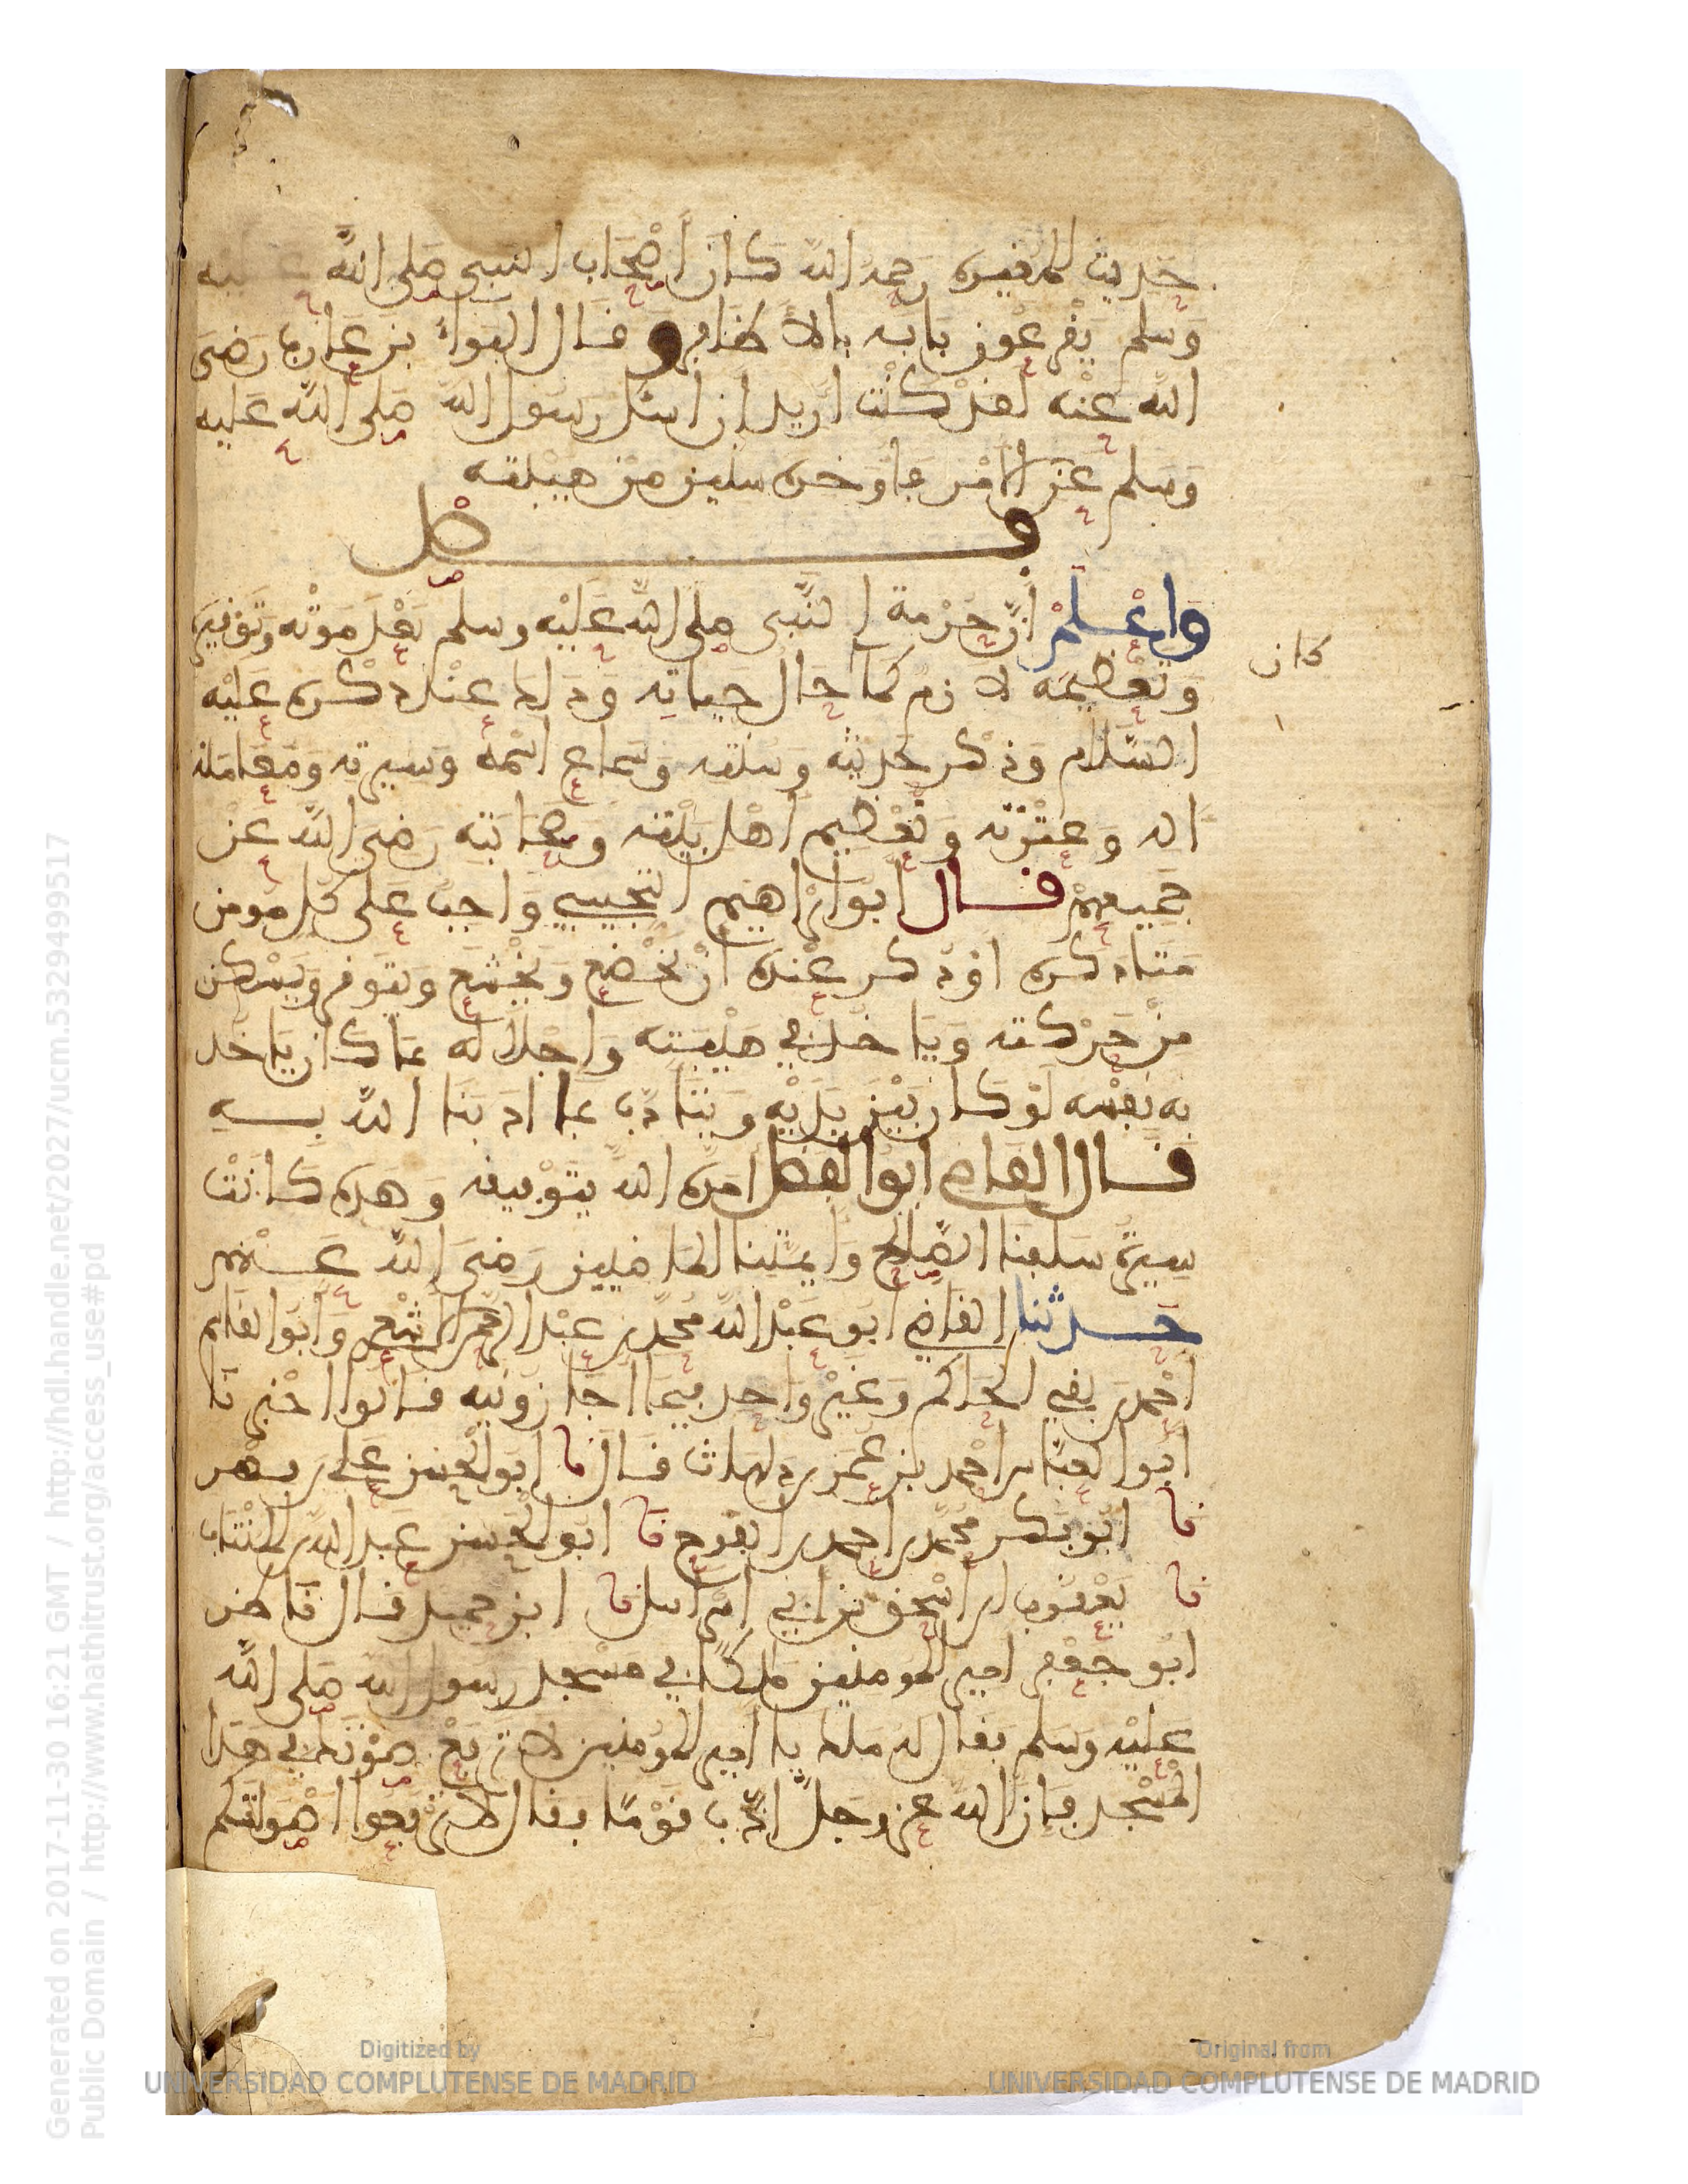 حديث المغيره رحمه الله كان أصحاب النبي صلى الله عليه
وسلم يقرعون بابه بالأظافر وقال البراء بن عازب رضى
الله عنه لقد كنت أريد ان اسئل رسول الله صلى الله عليه
وسلم عن الأمر فأوخره سنين من هيبته
فصل
واعلم أن حرمة النبي صلى الله عليه وسلم بعد موته وتوقيره
كان
وتعظيمه لازم كما حال حياته وذلك عند ذكره عليه
السلام وذكر حديثه وسنته وسماع اسمه وسيرته ومعاملة
اله وعترته وتعظيم أهل بيته وصحابته رضى الله عن
جميعهم قال ابو ابراهيم التجيبي واجب على كل مومن
متا ذكره او ذكر عنده أن يخضع ويخشع ويتوقر ويسكن
من حركته وياخذ في هيبته واجلاله بما كان ياخذ
به نفسه لو كان بين يديه ويتادب بما ادبنا الله به
قال القاضي ابو الفضل امده الله بتوفيقه وهذه كانت
سيرة سلفنا الصالح وايمتنا الماضيين رضى الله عنهم
حدثنا القاضي ابو عبد الله محمد بن عبد الرحمن الاشعري وابو القاسم
احمد بن بقي الحاكم وغير واحد فيما اجازونيه قالوا اخبرنا
ابو العباس احمد بن عمر بن دلهاث قال نا ابو الحسن علي بن فهر
نا ابو بكر محمد بن احمد بن الفرج نا ابو الحسن عبد الله بن المنتاب
نا يعقوب بن اسحق بن أبي اسراءيل نا ابن حميد قال ناظر
ابو جعفر امير المومنين ملكا في مسجد رسول الله صلى الله
عليه وسلم فقال له ملك يا امير المومنين لا ترفع صوتك في هذا
المسجد فإن الله عز وجل ادب قوما فقال لا ترفعوا اصواتكم
Generated on 2017-11-30 16:21 GMT / http://hdl.handle.net/2027/ucm.5329499517
Public Domain / http://www.hathitrust.org/access_use#pd
Digitized by
UNIVERSIDAD COMPLUTENSE DE MADRID
Original from
UNIVERSIDAD COMPLUTENSE DE MADRID